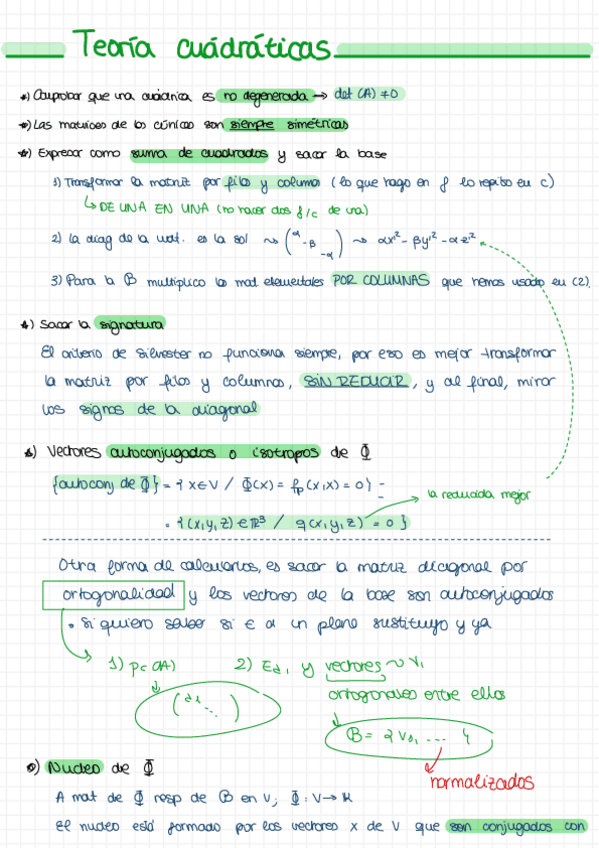 Teoría cuádráticas
*) Comprobar que una cuádrica es no degenerada → det (A) ≠ 0
*) Las matrices de las cónicas son siempre simétricas
*) Expresar como suma de cuadrados y sacar la base
1) Transformar la matriz por filas y columna (lo que hago en f lo repito en c)
↳ DE UNA EN UNA (no hacer dos f/c de una)
2) la diag de la mat. es la sol ⇝ (α -β -α) ⇝ αx'² - βy'² - αz'²
3) Para la B multiplico las mat elementales POR COLUMNAS que hemos usado en (2).
*) Sacar la signatura
El criterio de Silvester no funciona siempre, por eso es mejor transformar
la matriz por filas y columnas, SIN REDUCIR, y al final, mirar
los signos de la diagonal
*) Vectores autoconjugados o isotropos de Φ
{autoconj de Φ} = { x∈V / Φ(x) = fp(x,x) = 0 } =
= {(x,y,z) ∈ ℝ³ / q(x,y,z) = 0 }
→ la reducida mejor
Otra forma de calcularlos, es sacar la matriz diagonal por
ortogonalidad y los vectores de la base son autoconjugados
• si quiero saber si ∈ a un plano sustituyo y ya
1) pc(A) 2) Eλ1 y vectores ~ v1
(λ1 ...) ortogonales entre ellos
B = { v1, ... }
normalizados
*) Nucleo de Φ
A mat de Φ resp de B en V; Φ: V → K
El nucleo está formado por los vectores x de V que son conjugados con